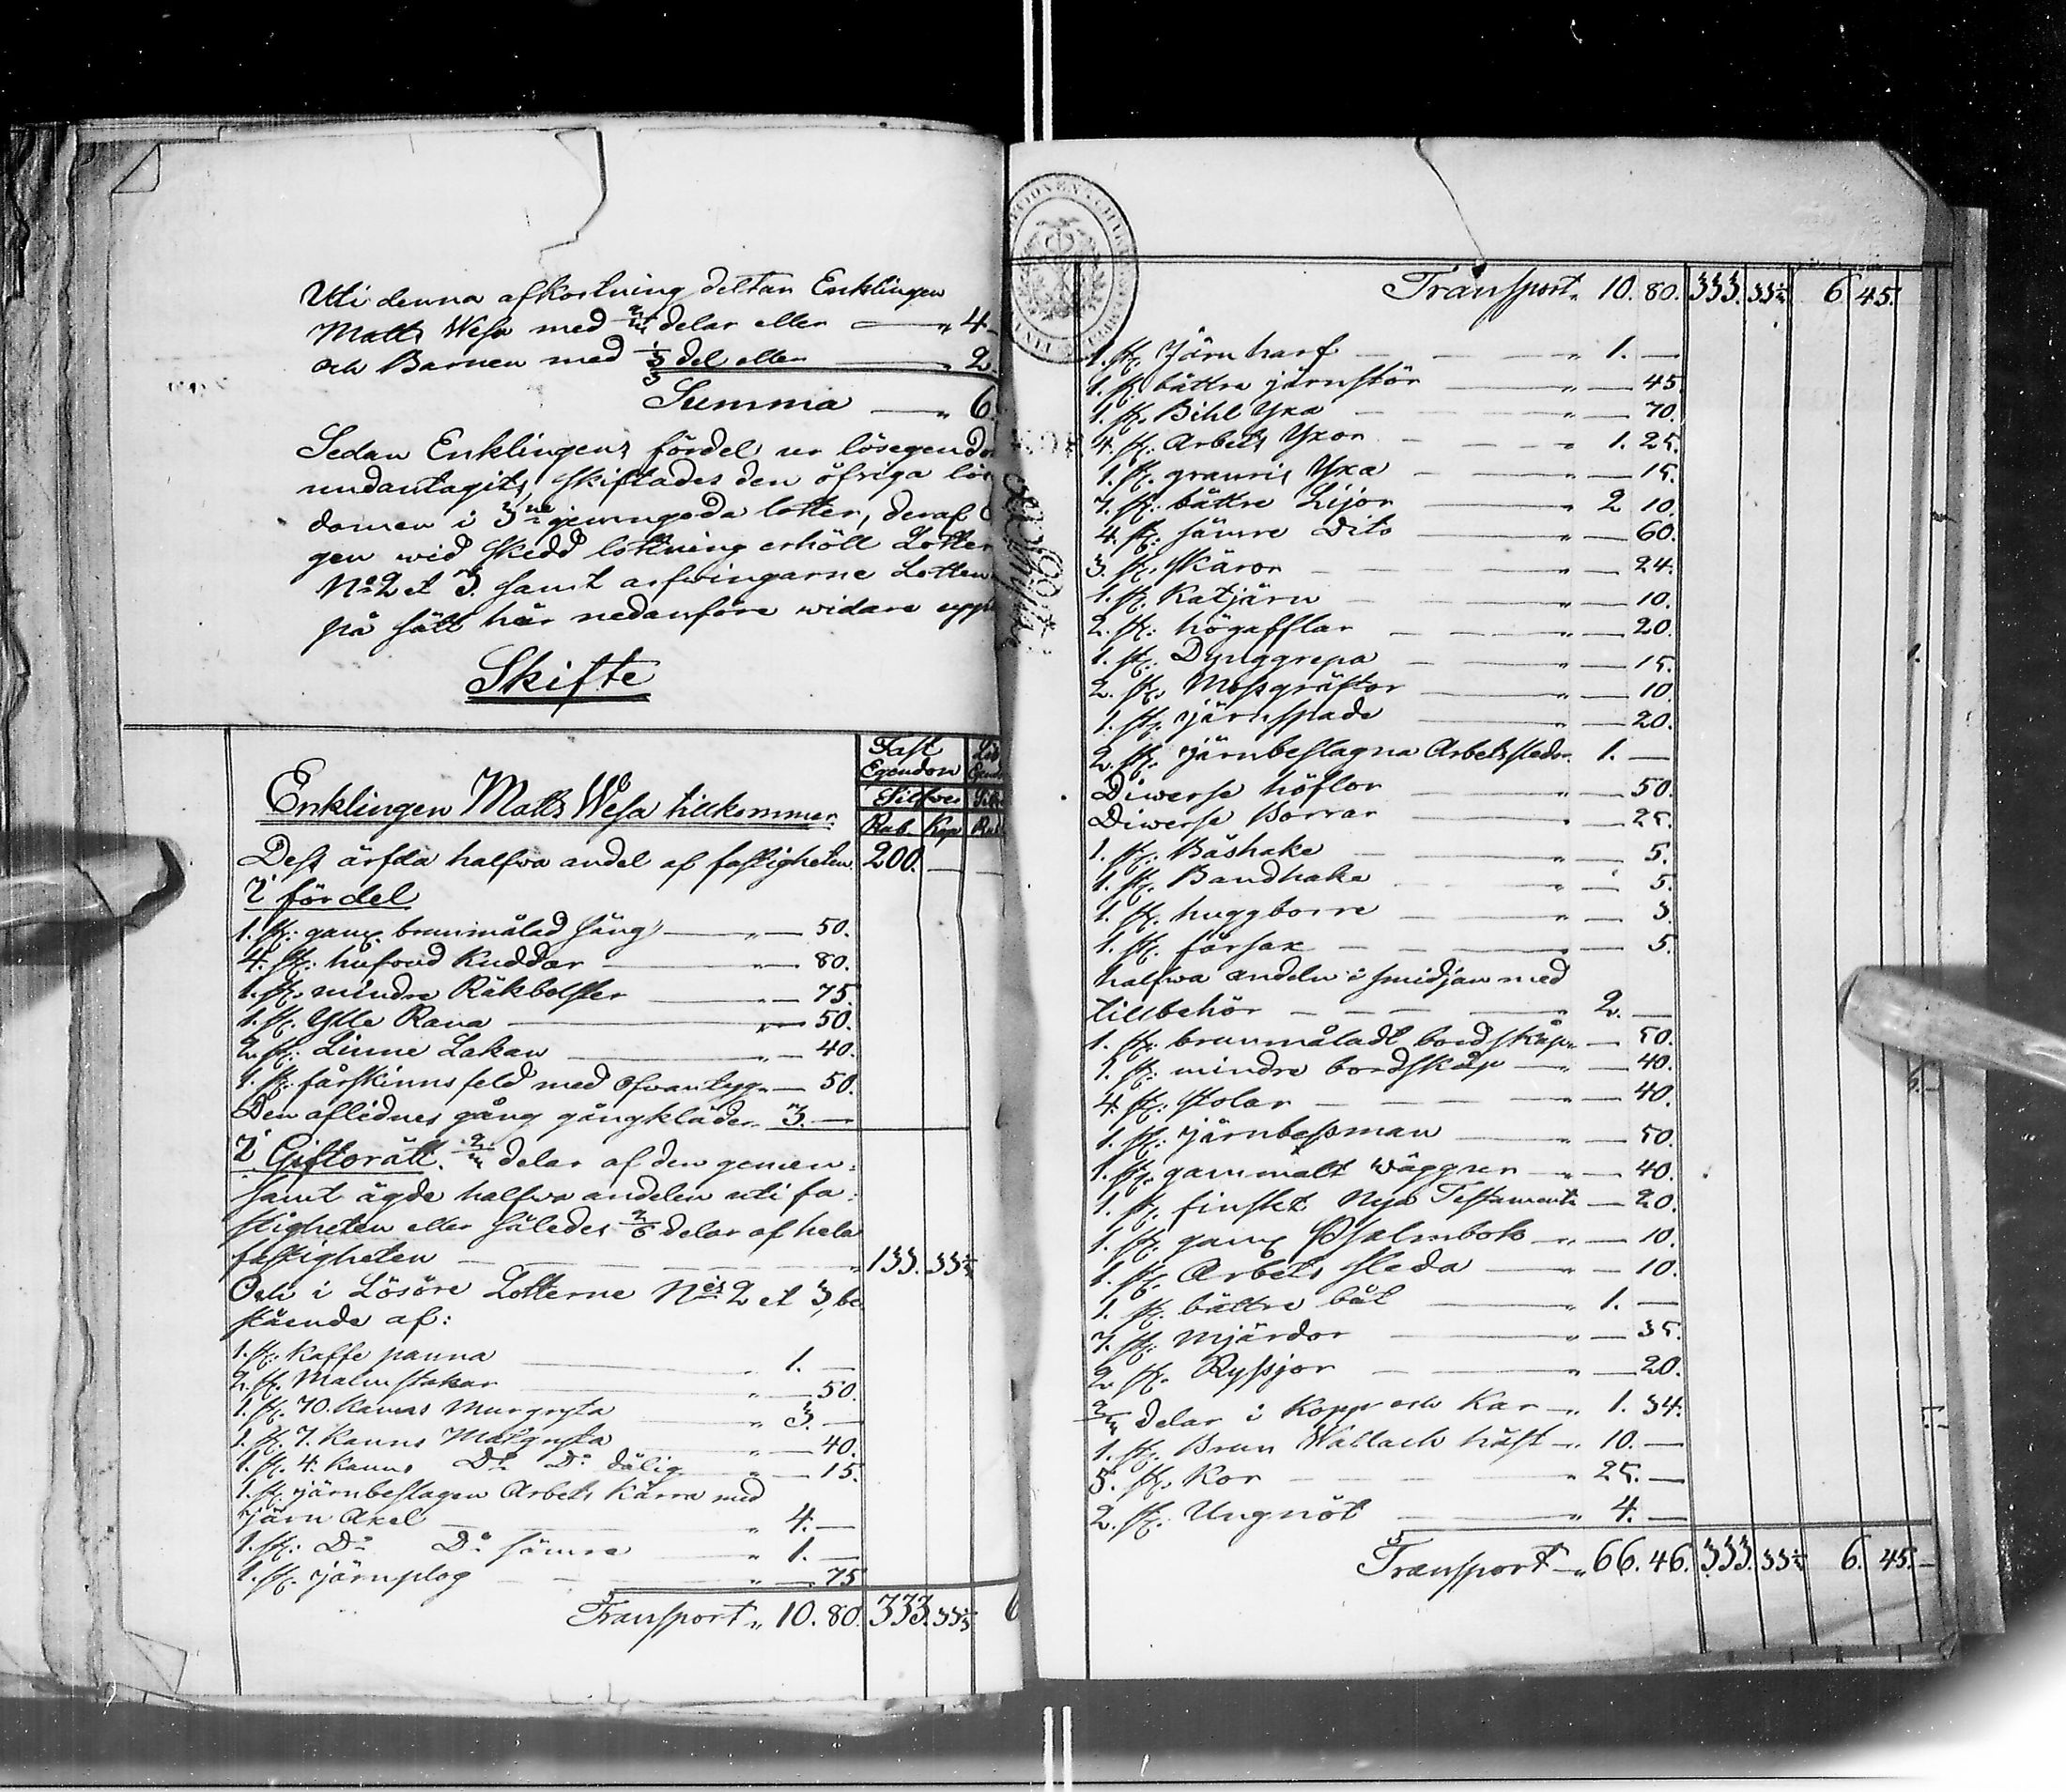 Uti denna afkortning deltar Enklingen
Matts Wesa med 2/3 delar eller — „ 4
och Barnen med 1/3 del eller — „ 2
Summa — „ 6
Sedan Enklingens fördel ur lösegendo
undantagits, skiftades den öfriga lös
domen i 3ne jemngoda lotter, deraf
gen wid skedd lottning erhöll Lotter
No 2 et 3. samt arfwingarne Lotten
på sätt här nedanföre widare upp
Skifte
Fast Egendom
Silfwer
Enklingen Matts Wesa tillkommer
Rub. Kop Rub
Dess ärfda halfwa andel af fastigheten. 200. —
I fördel
1. st: gam. brunmålad säng — „ — 50.
4. st: hufwud Kuddar — „ — 80.
1. st: mindre Räkbolster — „ — 75.
1. st: Ylle Rana — „ — 50.
2. st: Linne Lakan — „ — 40.
1. st: fårskinns feld med ofwantyg „ — 50.
Den aflidnes gång gångkläder „ 3. —
I Giftorätt. 2/3 delar af den gemen:
samt ägde halfwa andelen uti fa:
stigheten eller således 2/6 delar af hela
fastigheten — „ 133. 33 1/3
Och i Lösöre Lotterne Nris 2 et 3, be
stående af:
1. st: Kaffe panna — „ 1. —
2. st: Malmstakar — „ — 50.
1. st. 70. Kannas Murgryta — „ 3. —
1. st. 7. Kanns Matgryta — „ — 40.
1. st. 4. Kanns Do Do dålig — „ — 15.
1. st. järnbeslagen Arbets Kärra med
järn Axel — „ 4. —
1. st: Do Do sämre — „ 1. —
1. st. järnplog — „ — 75
Transport „ 10. 80. 333. 33 1/3 6
Transport „ 10. 80. 333. 33 1/3 6 45.
1. st. Järn harf — „ 1. —
1. st. bättre järnstör — „ — 45
1. st. Bihl Yxa — „ — 70.
4. st. Arbets Yxor — „ 1. 25.
1. st. grannris Yxa — „ — 15.
7. st: bättre Lijor — „ 2 10.
4. st: sämre Dito — „ — 60.
3. st. Skäror — „ — 24.
1. st. Katjärn — „ — 10.
2. st: högafflar — „ — 20.
1. st: Dynggrepa — „ — 15.
2. st. Mossgräftor — „ — 10
1. st. järnspade — „ — 20.
2. st. järnbeslagna Arbetsslädor. 1. —
Diwerse höflor — „ — 50.
Diwerse Borrar — „ — 25.
1. st. Båshake — „ — 5.
1. st. Bandhake — „ — 5.
1. st. huggborre — „ — 3
1. st. fårsax — „ — 5.
halfwa andeln i smidjan med
tillbehör — „ 2. —
1. st. brunmåladt bordskåp „ — 50.
1. st: mindre bordskåp — „ — 40.
4. st: stolar — „ — 40.
1. st: järnbessman — „ — 50.
1. st. gammalt wäggur — „ — 40.
1. st. finskt Nya Testament — 20.
1. st. gam. Psalmbok — „ — 10.
1. st. Arbets släda — „ — 10.
1. st: bättre båt — „ 1. —
7. st. Mjärdor — „ — 35.
2. st. Ryssjor — „ — 20.
2/3 delar i Kopp och Kar — „ 1. 34.
1. st. Brun Wallach häst — „ 10. —
5. st. Kor — „ 25. —
2. st. Ungnöt — „ 4. —
Transport — „ 66. 46. 333. 33 1/3 6. 45. —